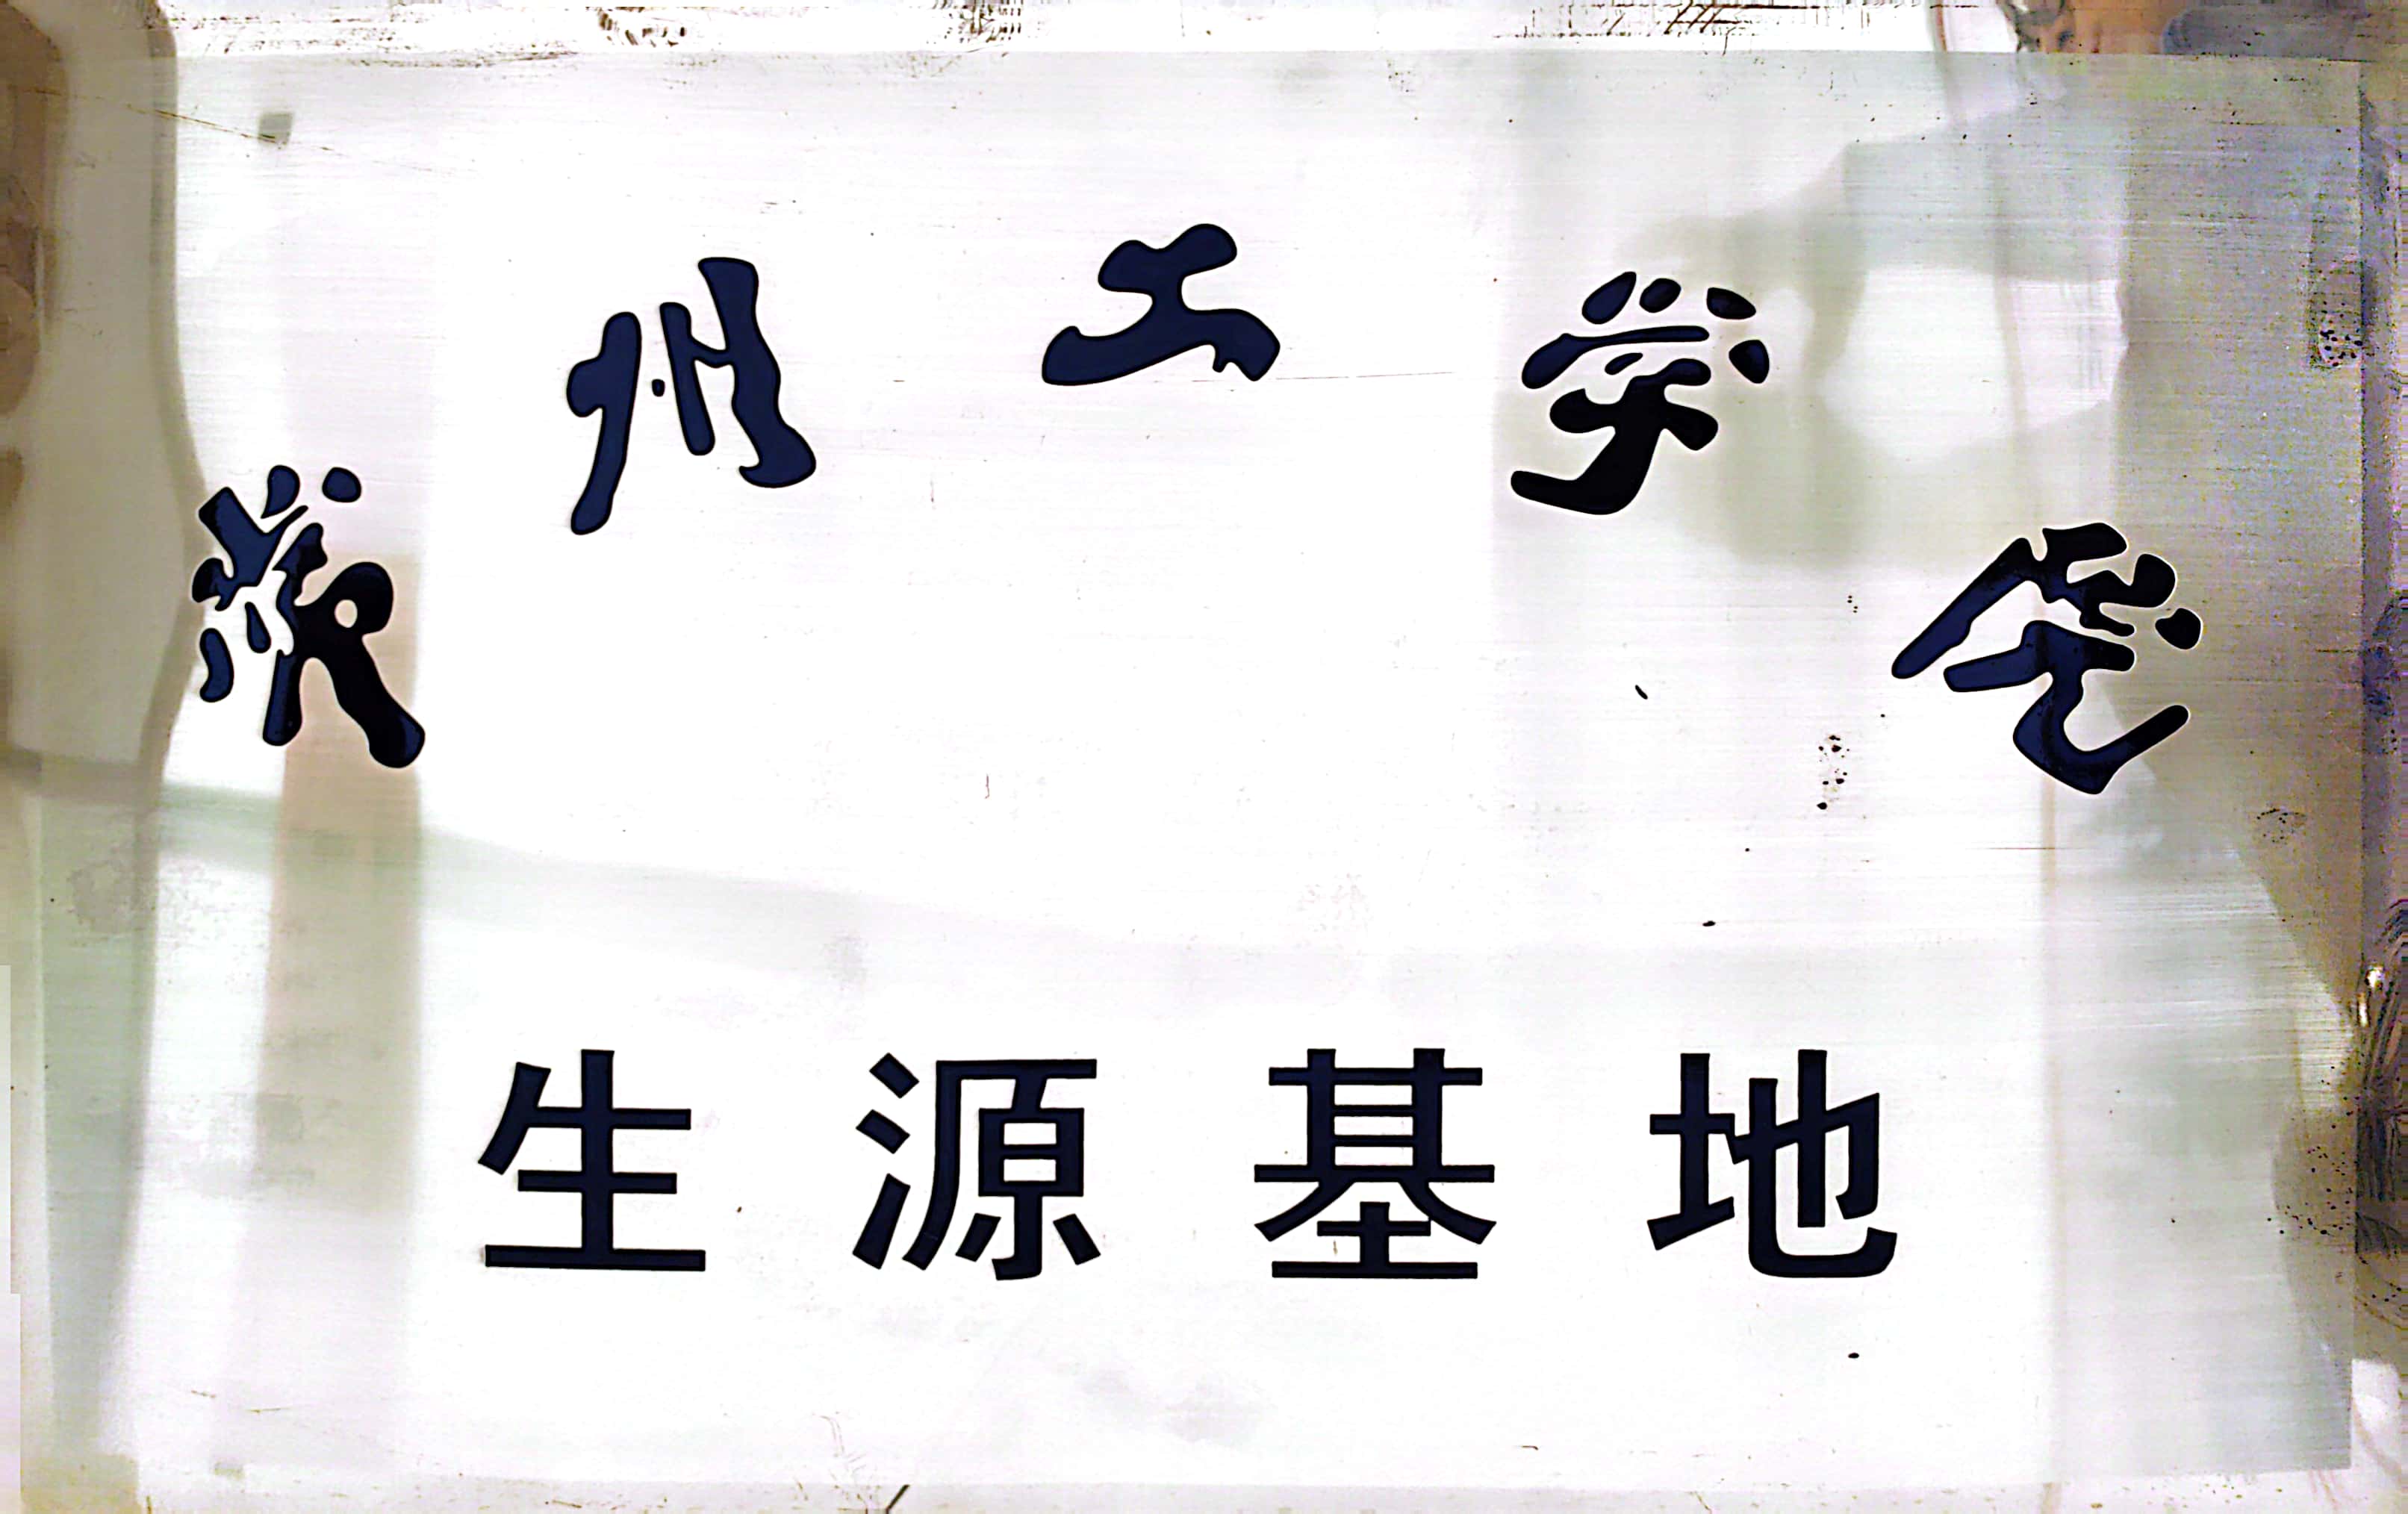 常州工学院
生源基地